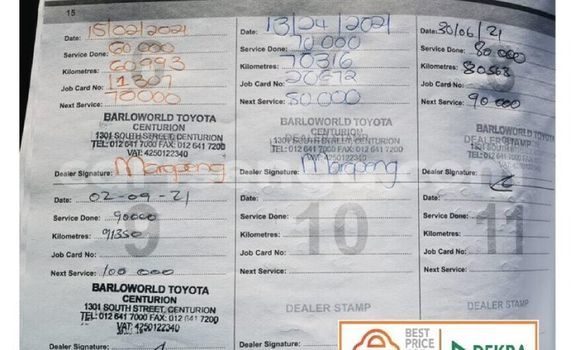 15
Date: 15/02/2021
Service Done: 60 000
Kilometres: 60993
Job Card No: 11307
Next Service: 70000
BARLOWORLD TOYOTA
CENTURION
1301 SOUTH STREET, CENTURION
TEL: 012 641 7000 FAX: 012 641 7200
VAT: 4250122340
Dealer Signature:
Date: 13/04/2021
Service Done: 70 000
Kilometres: 70316
Job Card No: 20572
Next Service: 80000
BARLOWORLD TOYOTA
CENTURION
1301 SOUTH STREET, CENTURION
TEL: 012 641 7000 FAX: 012 641 7200
VAT: 4250122340
Dealer Signature:
Date: 30/06/21
Service Done: 80 000
Kilometres: 80568
Job Card No:
Next Service: 90 000
BARLOWORLD TOYOTA
CENTURION
DEALER STAMP
1301 SOUTH STREET, CENTURION
TEL: 012 641 7000 FAX: 012 641 7200
VAT: 4250122340
Dealer Signature:
9
Date: 02-09-21
Service Done: 90000
Kilometres: 91350
Job Card No:
Next Service: 100 000
BARLOWORLD TOYOTA
CENTURION
1301 SOUTH STREET, CENTURION
TEL: 012 641 7000 FAX: 012 641 7200
VAT: 4250122340
Dealer Signature:
10
Date:
Service Done:
Kilometres:
Job Card No:
Next Service:
DEALER STAMP
11
Date:
Service Done:
Kilometres:
Job Card No:
Next Service:
DEALER STAMP
BEST
PRICE
DEKRA